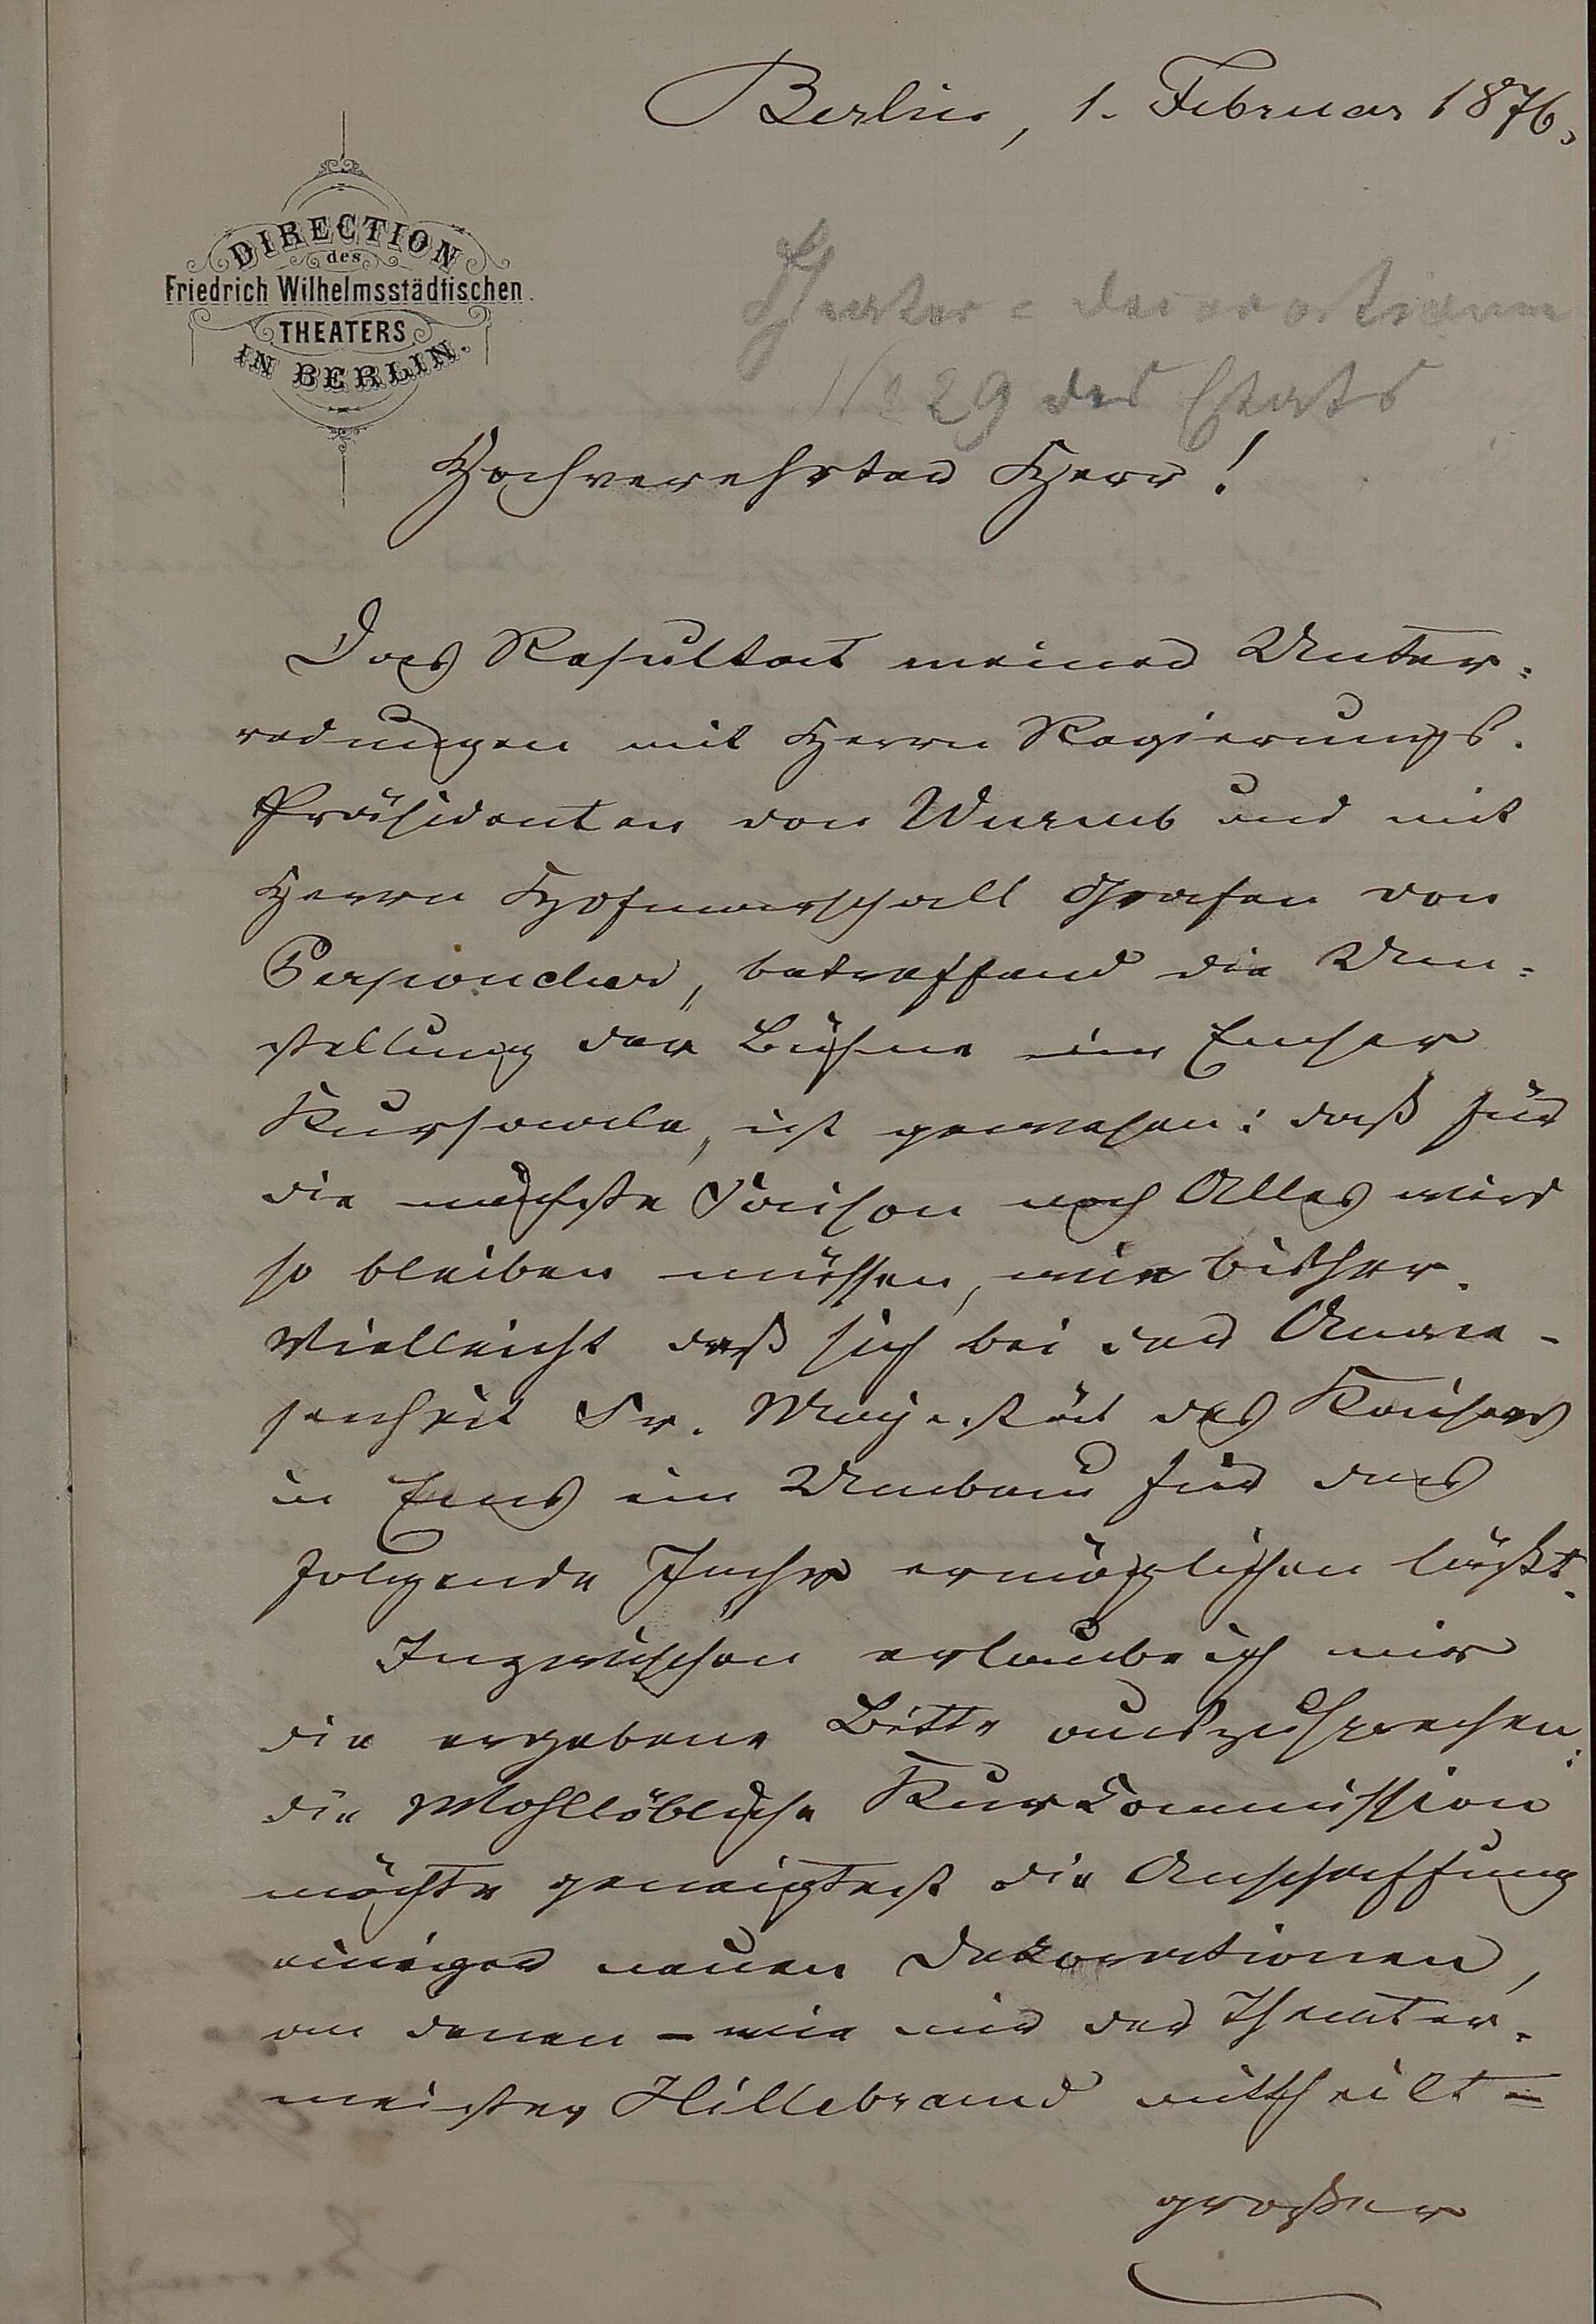 Berlin, 1. Februar 1876.
DIRECTION
des
Friedrich Wilhelmsstädtischen
THEATERS
IN BERLIN.
Theater-Decorationen
No 29 des Etats
Hochverehrter Herr!
Das Resultat meiner Unter-
redungen mit Herrn Regierungs-
Präsidenten von Wurmb und mit
Herrn Hofmarschall Grafen von
Perponcher, betreffend die Um-
stellung der Bühne im Emser
Kursaale, ist gewesen: daß für
die nächste Saison noch Alles wird
so bleiben müssen, wie bisher.
Vielleicht daß sich bei der Anwe-
senheit Sr. Majestät des Kaisers
in Ems ein Umbau für das
folgende Jahr ermöglichen läßt.
Inzwischen erlaube ich mir
die ergebene Bitte auszusprechen:
die Wohllöbliche Kurkommission
möchte geneigtest die Anschaffung
einiger neuen Dekorationen,
an denen - wie mir der Theater-
meister Hillebrand mittheilt -
großer